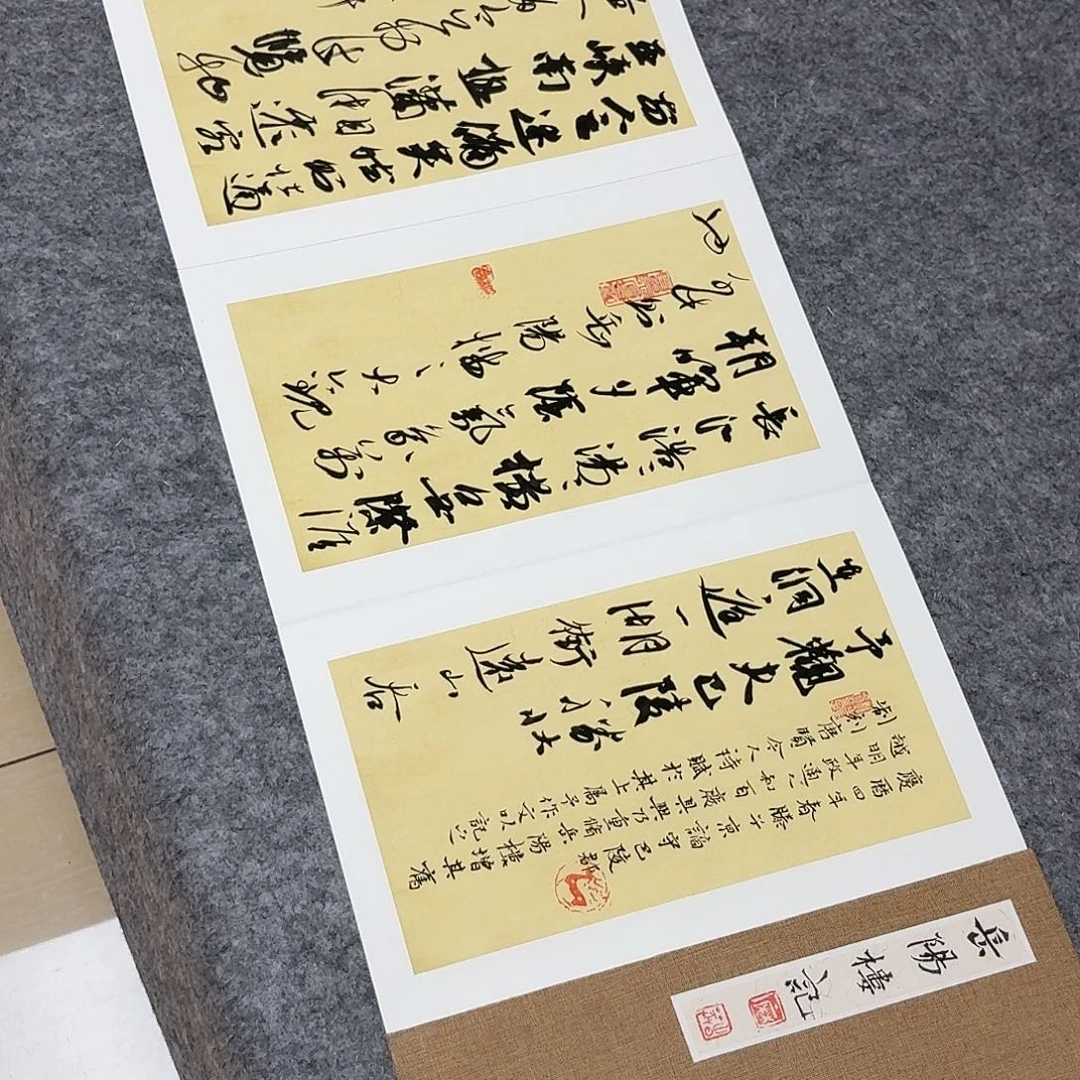 岳陽樓記
慶曆四年春滕子京謫守巴陵郡
越明年政通人和百廢具興乃重脩岳陽樓增其舊
制刻唐賢今人詩賦於其上屬予作文以記之
予觀夫巴陵勝狀
在洞庭一湖銜遠山吞
長江浩浩湯湯橫無際涯
朝暉夕陰氣象萬千
此則岳陽樓之大觀
也
前人之述備矣然則北通
巫峽南極瀟湘遷客